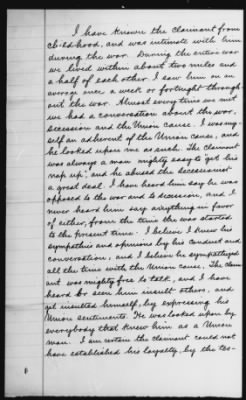 I have known the claimant from
childhood, and was intimate with him
during the war. During the entire war
we lived within about two miles and
a half of each other. I saw him on an
average once a week or fortnight through
out the war. Almost every time we met
we had a conversation about the war,
secession and the Union cause. I was my-
self an adherent of the Union cause, and
he looked upon me as such. The claimant
was always a man mighty easy to "get his
nap up", and he abused the secessionist
a great deal. I have heard him say he was
opposed to the war and to secession, and I
never heard him say anything in favor
of either, from the time the war started
to the present time. I believe I knew his
sympathies and opinions by his conduct and
conversation, and I believe he sympathized
all the time with the Union cause. The claim
ant was mighty free to talk, and I have
heard & seen him insult others, and
get insulted himself, by expressing his
Union sentiments. He was looked upon by
everybody that knew him as a Union
man. I am certain the claimant could not
have established his loyalty, by the tes-